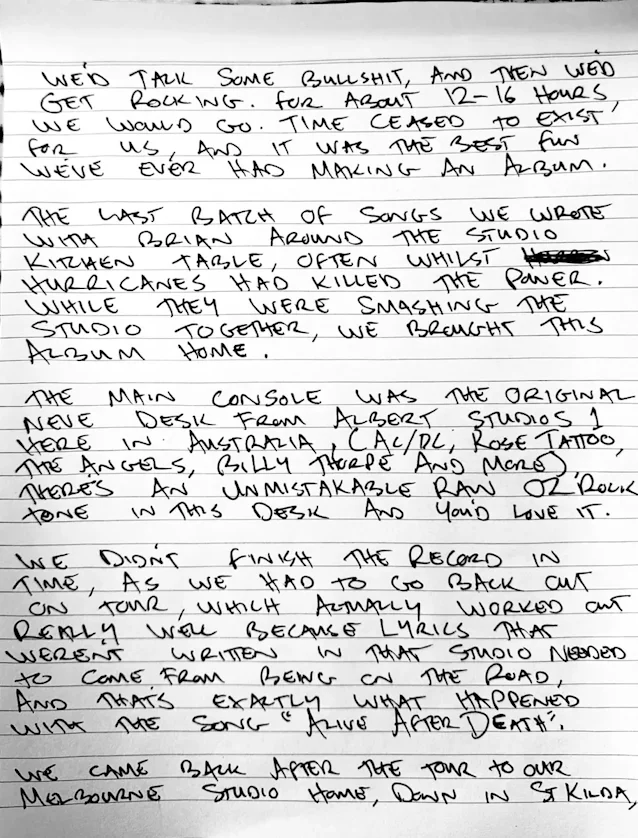 WE'D TALK SOME BULLSHIT, AND THEN WE'D
GET ROCKING. FOR ABOUT 12-16 HOURS,
WE WOULD GO. TIME CEASED TO EXIST
FOR US, AND IT WAS THE BEST FUN
WE'VE EVER HAD MAKING AN ALBUM.
THE LAST BATCH OF SONGS WE WROTE
WITH BRIAN AROUND THE STUDIO
KITCHEN TABLE, OFTEN WHILST
HURRICANES HAD KILLED THE POWER.
WHILE THEY WERE SMASHING THE
STUDIO TOGETHER, WE BROUGHT THIS
ALBUM HOME.
THE MAIN CONSOLE WAS THE ORIGINAL
NEVE DESK FROM ALBERT STUDIOS 1
HERE IN AUSTRALIA, (AC/DC, ROSE TATTOO,
THE ANGELS, BILLY THORPE AND MORE),
THERE'S AN UNMISTAKABLE RAW OZ ROCK
TONE IN THIS DESK AND YOU'D LOVE IT.
WE DIDN'T FINISH THE RECORD IN
TIME, AS WE HAD TO GO BACK OUT
ON TOUR, WHICH ACTUALLY WORKED OUT
REALLY WELL BECAUSE LYRICS THAT
WEREN'T WRITTEN IN THAT STUDIO NEEDED
TO COME FROM BEING ON THE ROAD,
AND THAT'S EXACTLY WHAT HAPPENED
WITH THE SONG "ALIVE AFTER DEATH".
WE CAME BACK AFTER THE TOUR TO OUR
MELBOURNE STUDIO HOME, DOWN IN ST KILDA,